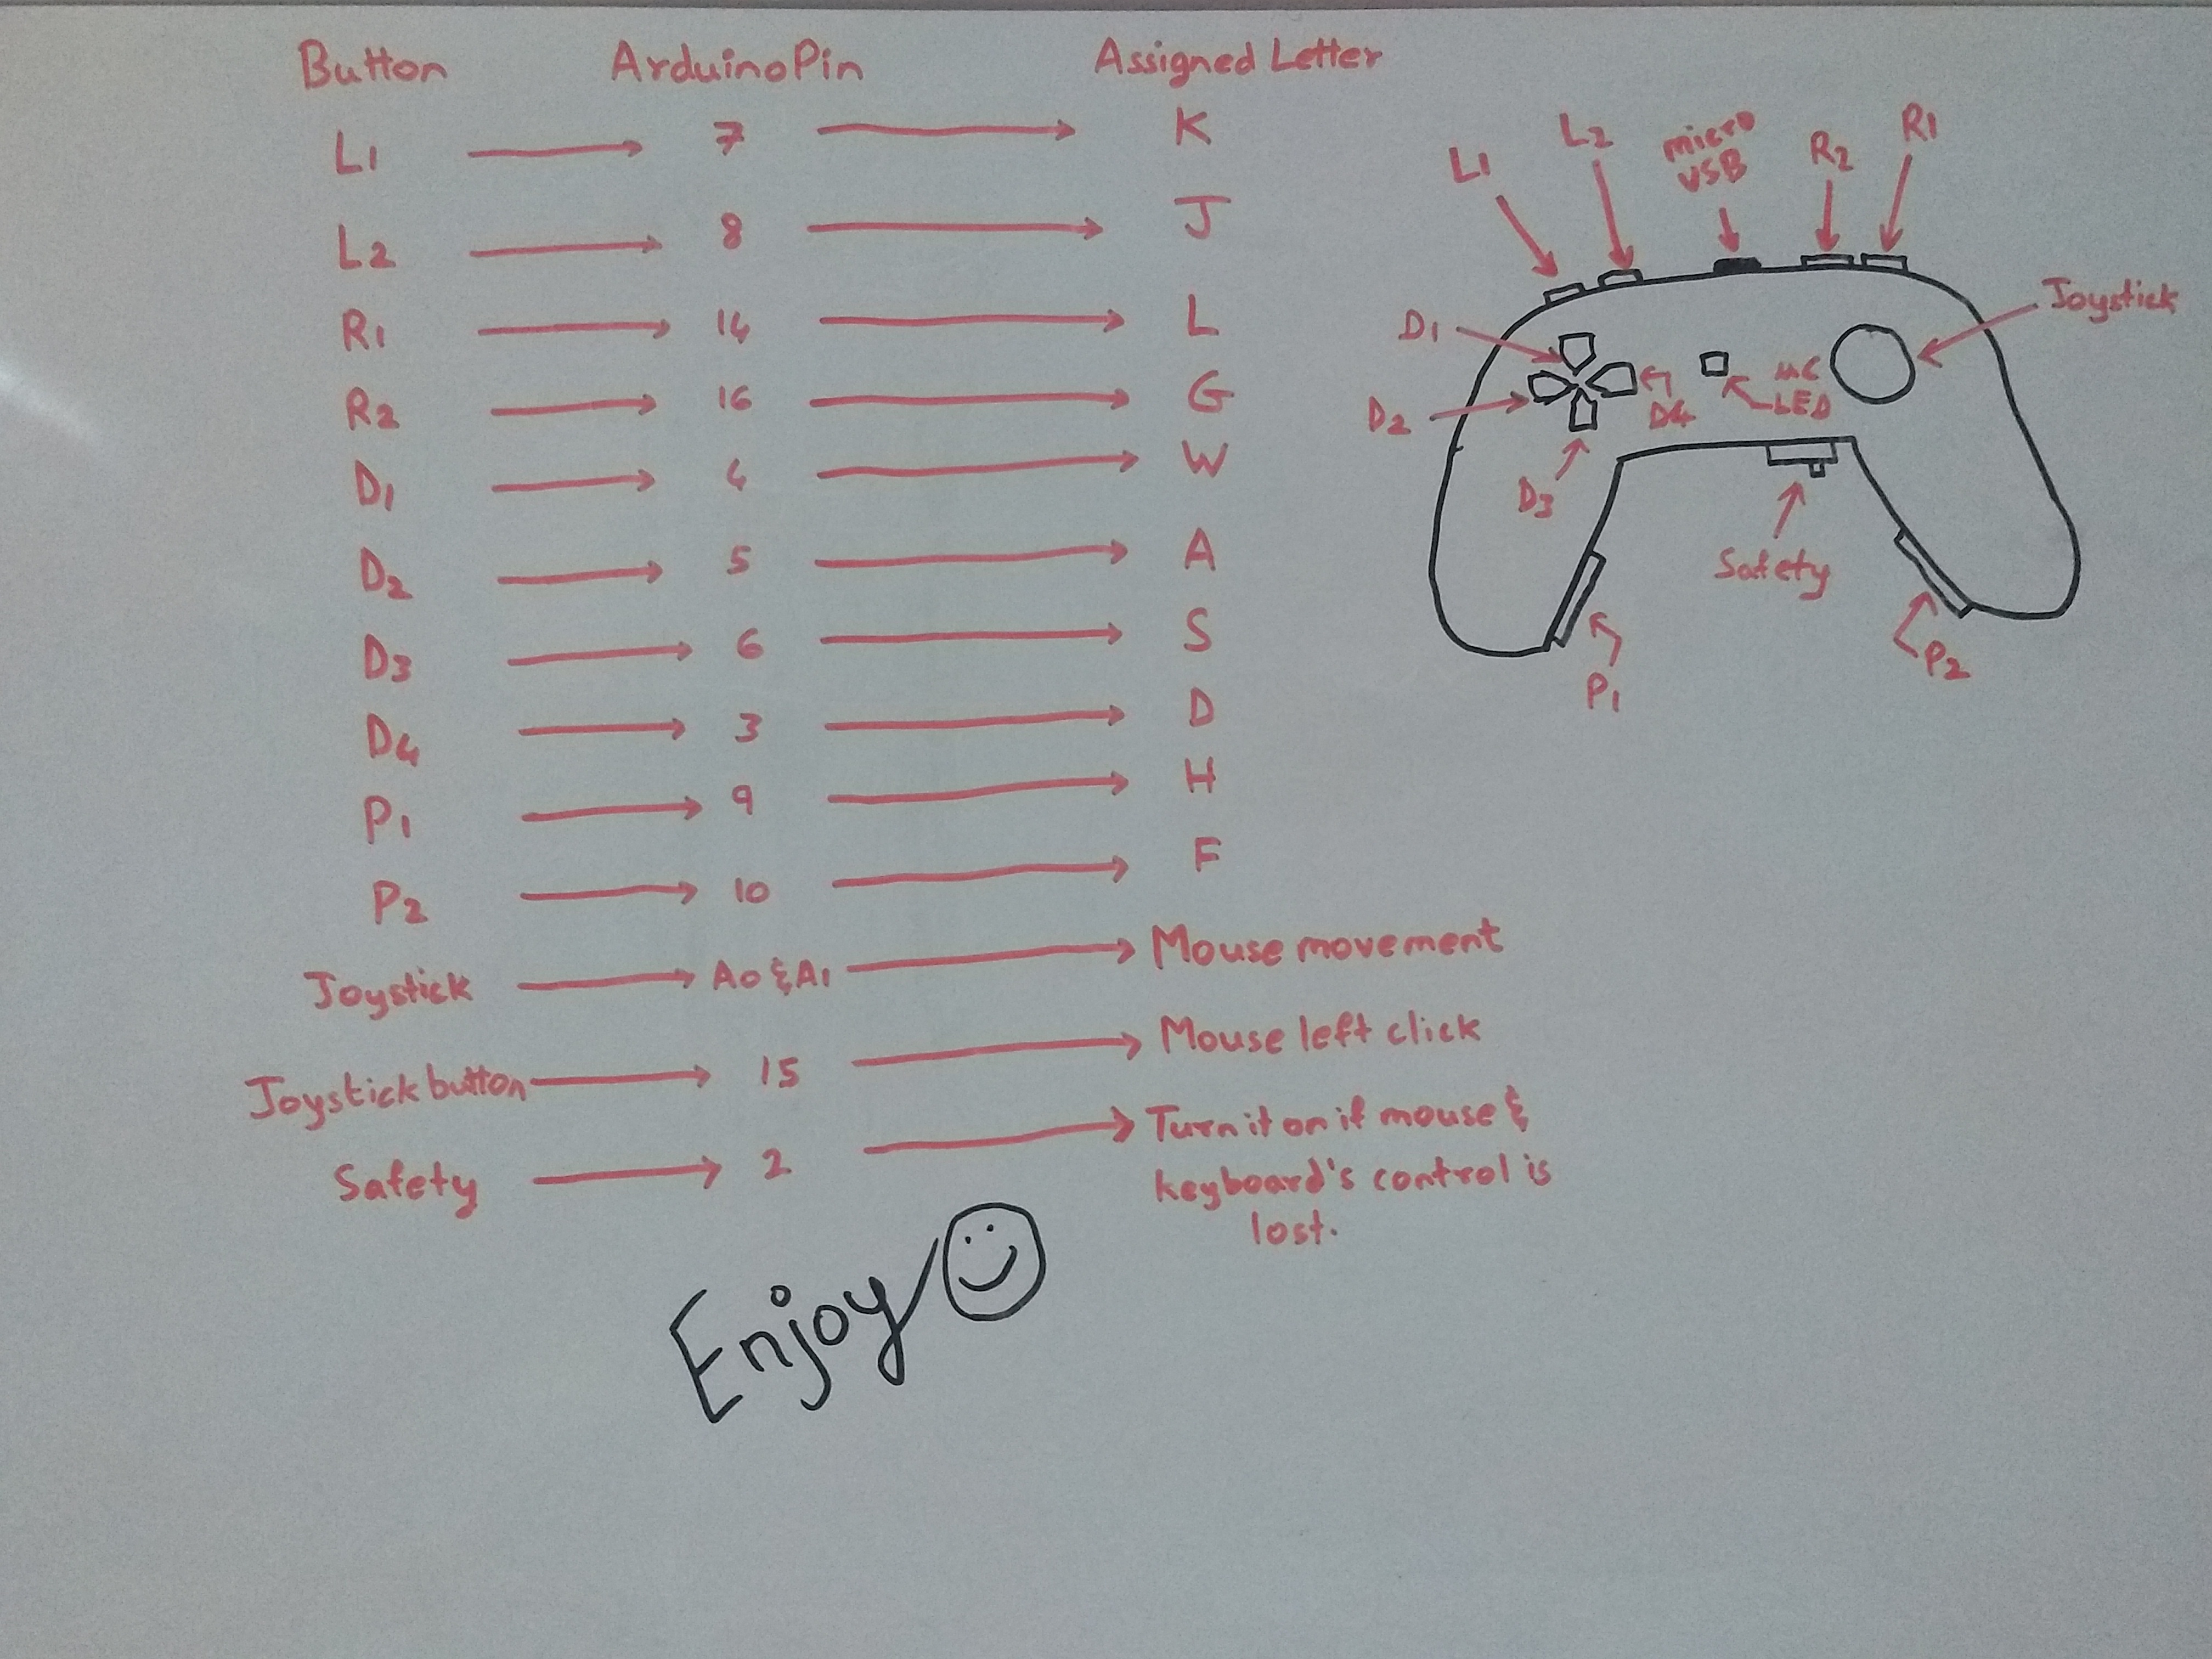 Button ArduinoPin Assigned Letter
L1 → 7 → K
L2 → 8 → J
R1 → 14 → L
R2 → 16 → G
D1 → 4 → W
D2 → 5 → A
D3 → 6 → S
D4 → 3 → D
P1 → 9 → H
P2 → 10 → F
Joystick → A0 & A1 → Mouse movement
Joystick button → 15 → Mouse left click
Safety → 2 → Turn it on if mouse &
keyboard's control is
lost.
Enjoy
L1
L2
micro
USB
R2
R1
Joystick
D1
D2
D3
D4
uC
LED
Safety
P1
P2